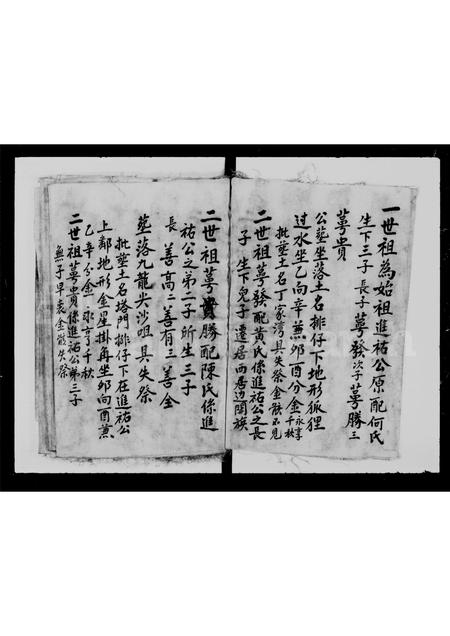 一世祖為始祖進祐公原配何氏
生下三子長子萼發次子萼勝三
萼貴
公墓坐落土名排仔下地形狐狸
过水坐乙向辛蕪卯酉分金永享千秋
批塟土名丁家湾具失祭金骸不見
二世祖萼發配黄氏係進祐公之長
子生下兒子遷居而居边閩族
二世祖萼勝配陳氏係進
祐公之第二子所生三子
長善高二善有三善全
塟落九龍尖沙咀具失祭
批塟土名塔門排仔下在進祐公
上鄰地形金星掛角坐卯向酉蕪
乙辛分金永享千秋
二世祖萼貴係進祐公第三子
無子早衰金骸失祭